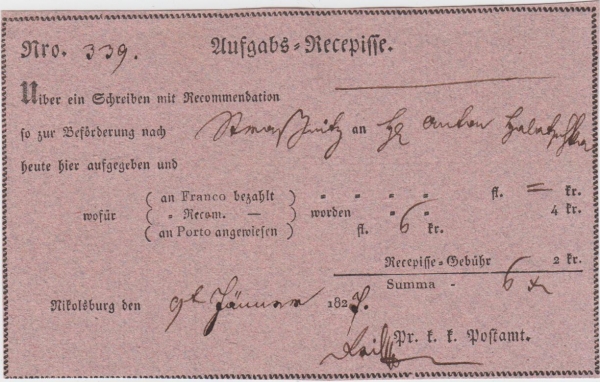 Nro. 339. Aufgabs-Recepisse.
Uiber ein Schreiben mit Recommendation
so zur Beförderung nach Straßnitz an H Anton
heute hier aufgegeben und
wofür
( an Franco bezahlt „ „ „ „ fl. = kr.
( „ Recom. — ) worden „ „ 4 kr.
( an Porto angewiesen ) fl. 6 kr.
Recepisse-Gebühr 2 kr.
Summa - 6 x
Nikolsburg den 9t Jänner 1827.
Pr. k. k. Postamt.